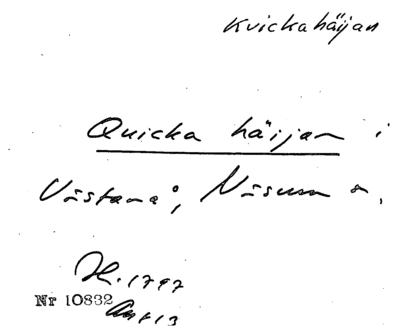 Kvickahäijan
Quicka häijan i
Västanå, Näsum s.
H. 1797
Nr 10832